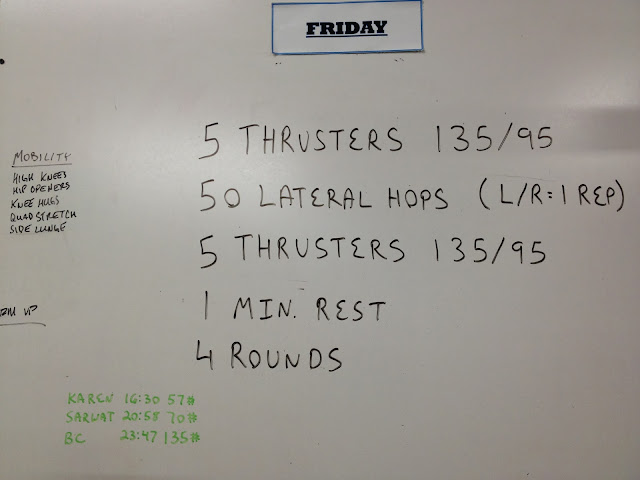 FRIDAY
5 THRUSTERS 135/95
50 LATERAL HOPS (L/R=1 REP)
5 THRUSTERS 135/95
1 MIN. REST
4 ROUNDS
MOBILITY
HIGH KNEES
HIP OPENERS
KNEE HUGS
QUAD STRETCH
SIDE LUNGE
UP
KAREN 16:30 57#
SARWAT 20:58 70#
BC 23:47 135#